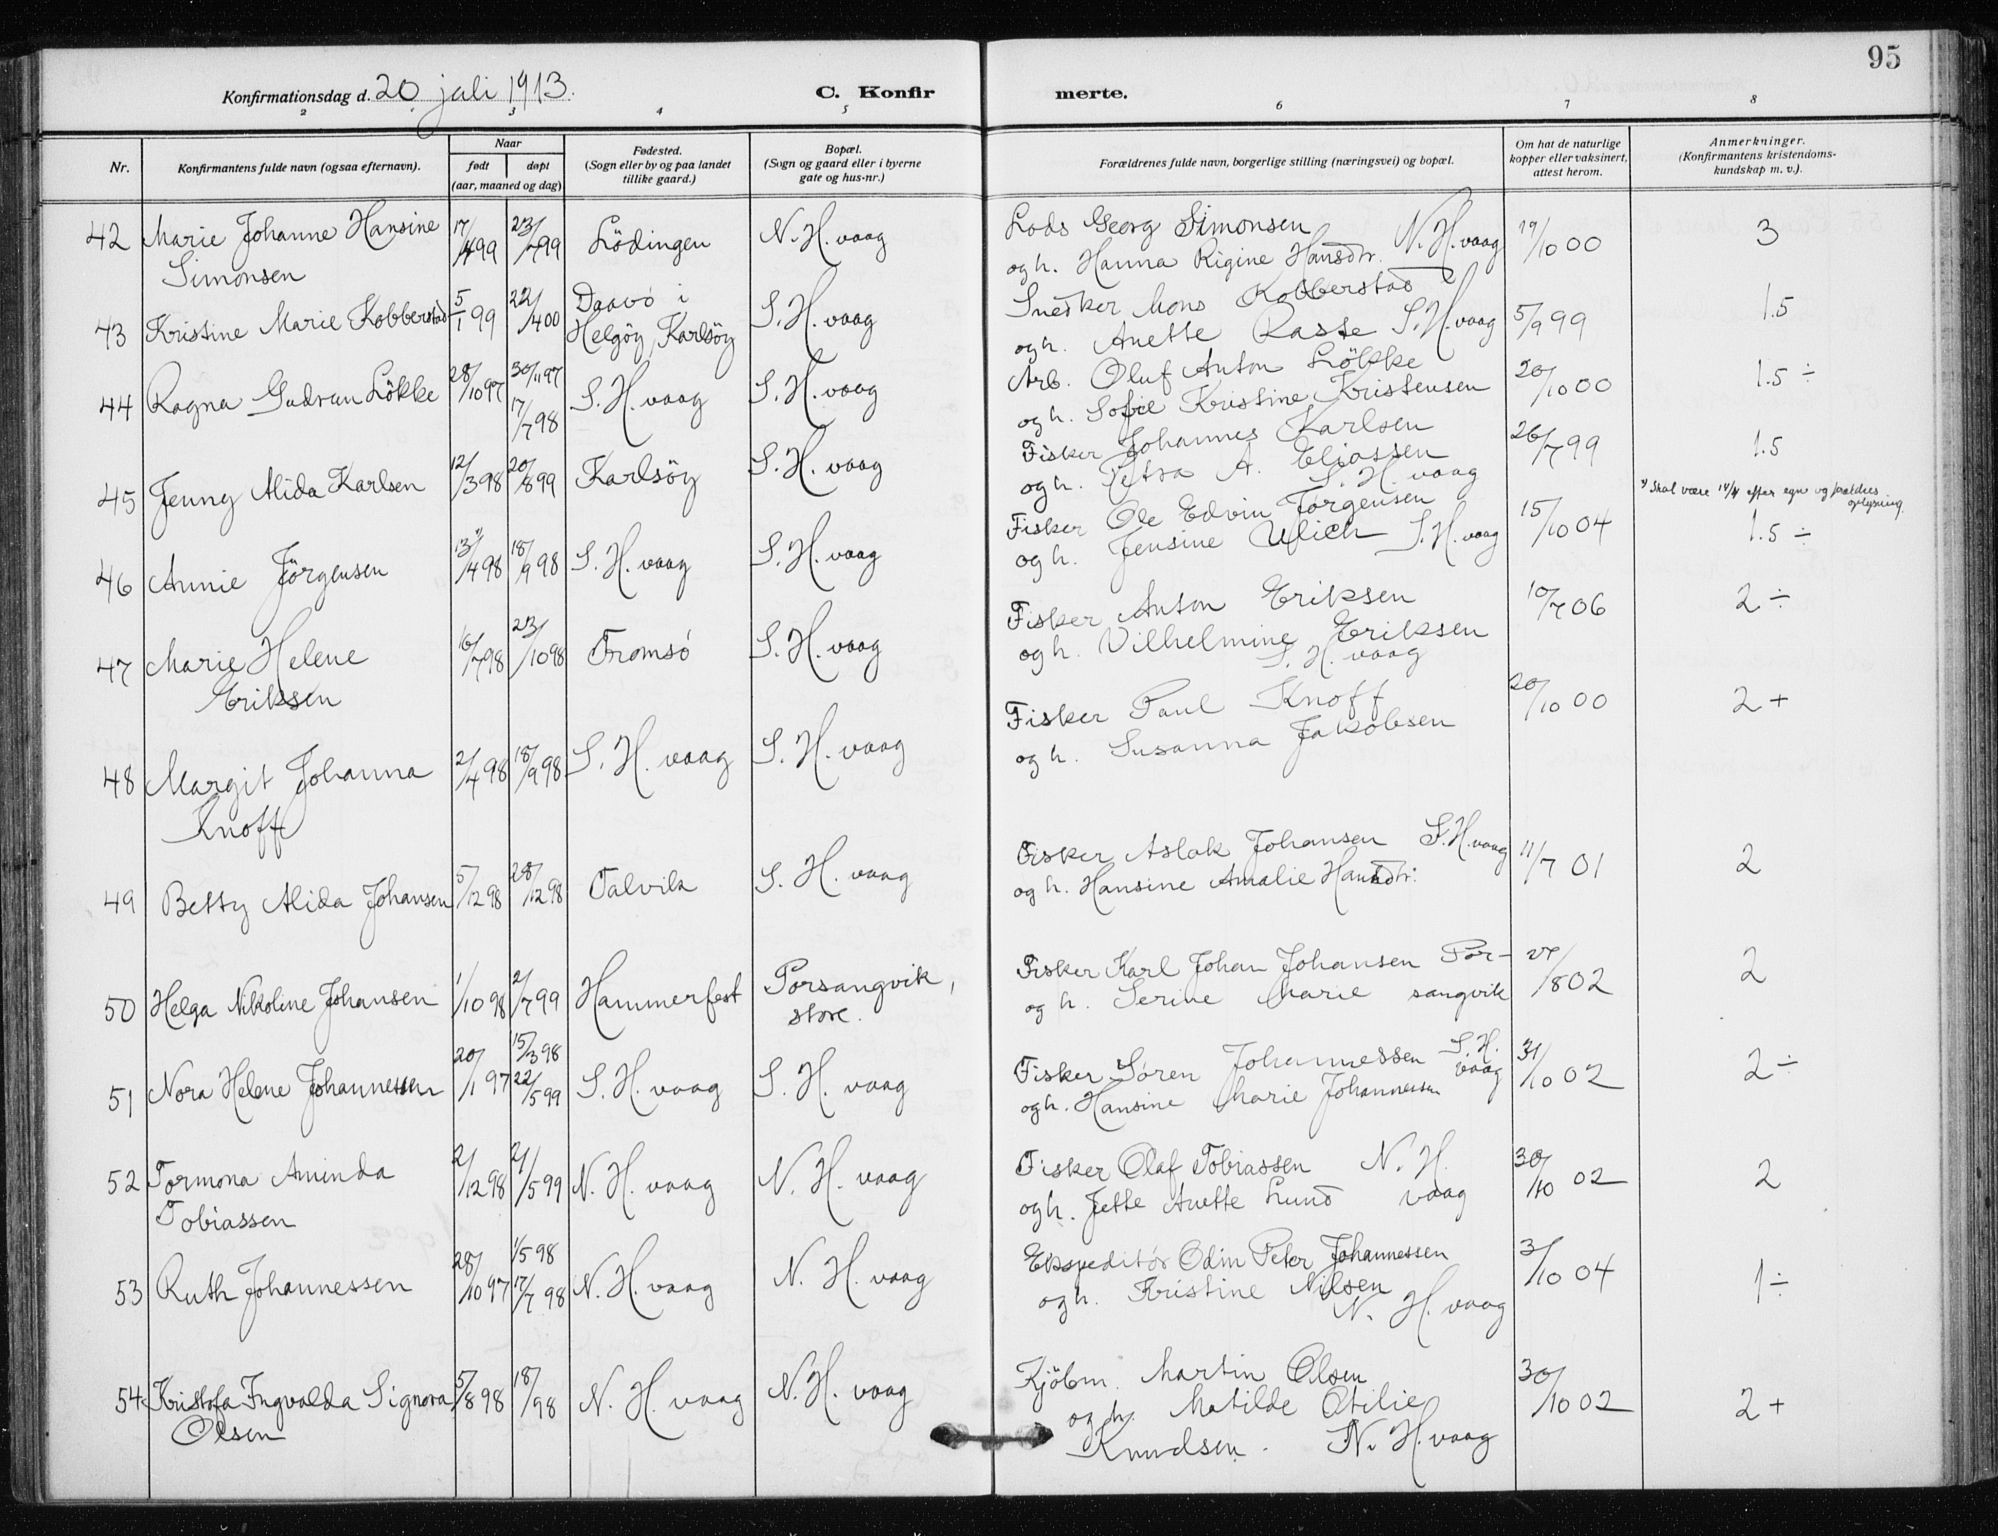 95
Konfirmationsdag d. 20. juli 1913.
C. Konfirmerte.
2 3 4 5 6 7 8
Nr.
Konfirmantens fulde navn (ogsaa efternavn).
Naar
født
døpt
(aar, maaned og dag)
Fødested.
(Sogn eller by og paa landet
tillike gaard.)
Bopæl.
(Sogn og gaard eller i byerne
gate og hus-nr.)
Forældrenes fulde navn, borgerlige stilling (næringsvei) og bopæl.
Om hat de naturlige
kopper eller vaksinert,
attest herom.
Anmerkninger.
(Konfirmantens kristendoms-
kundskap m. v.).
42 Marie Johanne Hansine 17/4 99 23/7 99 Lödingen N. H. vaag Lods Georg Simonsen N. H. vaag 19/10 00 3
Simonsen og h. Hanna Rigine Hansdtr.
43 Kristine Marie Kobberstad 5/1 99 22/4 00 Daavö i S. H. vaag Snedker Mons Kobberstad 5/9 99 1.5
Helgöy, Karlsöy og h. Anette Raste S. H. vaag
44 Ragna Gudrun Lökke 28/10 97 30/11 97 S. H. vaag S. H. vaag Arb. Oluf Anton Lökke 20/10 00 1.5 ÷
17/7 98 og h. Sofie Kristine Kristensen
45 Jenny Alida Karlsen 12/3 98 20/8 99 Karlsöy S. H. vaag Fisker Johannes Karlsen 26/7 99 1.5
og h. Petra A. Eliassen
S. H. vaag
46 Annie Jörgensen 13/4 98 18/9 98 S. H. vaag S. H. vaag Fisker Ole Edvin Jörgensen 15/10 04 1.5 ÷
og h. Jensine Ulich S. H. vaag
Skal være 14/4 efter egn og forældres
oplysning.
47 Marie Helene 16/7 98 23/10 98 Tromsö S. H. vaag Fisker Anton Eriksen 10/7 06 2 ÷
Eriksen og h. Vilhelmine Eriksen
S. H. vaag
48 Margit Johanna 2/4 98 18/9 98 S. H. vaag S. H. vaag Fisker Paul Knoff 20/10 00 2 +
Knoff og h. Susanna Jakobsen
49 Betty Alida Johansen 5/12 98 28/12 98 Talvik S. H. vaag Fisker Aslak Johansen S. H. vaag 11/7 01 2
og h. Hansine Amalie Hansdtr.
50 Helga Nikoline Johansen 1/10 98 2/7 99 Hammerfest Porsangvik, Fisker Karl Johan Johansen Por- 27/8 02 2
store. og h. Serine Marie sangvik
51 Nora Helene Johannessen 20/1 97 15/3 98 S. H. vaag S. H. vaag Fisker Sören Johannessen S. H. 31/10 02 2 ÷
22/5 99 og h. Hansine Marie Johannessen vaag
52 Tormona Aminda 2/12 98 21/5 99 N. H. vaag N. H. vaag Fisker Olaf Tobiassen N. H. 30/10 02 2
Tobiassen og h. Jette Anette Lund vaag
53 Ruth Johannessen 28/10 97 1/5 98 N. H. vaag N. H. vaag Ekspeditör Odin Peter Johannessen 3/10 04 1 ÷
17/7 98 og h. Kristine Nilsen
N. H. vaag
54 Kristofa Ingvalda Signora 5/8 98 18/98 N. H. vaag N. H. vaag Kjöbm. Martin Olsen 30/10 02 2 +
Olsen og h. Matilde Otilie
Knudsen. N. H. vaag